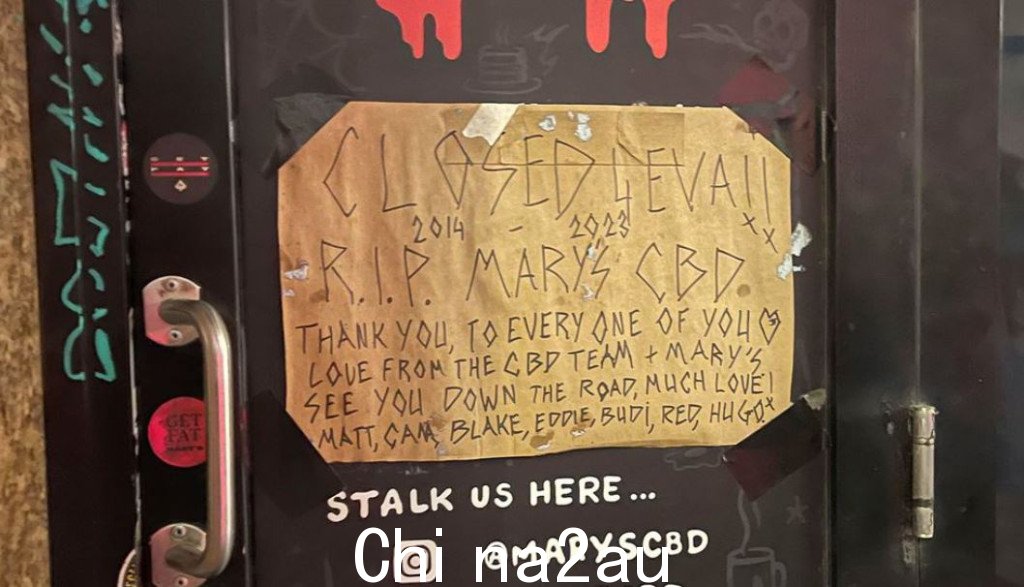 CLOSED 4EVA!!
2014 - 2023
XX
R.I.P. MARYS CBD
THANK YOU, TO EVERY ONE OF YOU
LOVE FROM THE CBD TEAM + MARY'S
SEE YOU DOWN THE ROAD, MUCH LOVE!
MATT, CAM, BLAKE, EDDIE, BUDI, RED, HUGO.X
GET
FAT
MARY'S
STALK US HERE...
@MARYSCBD
China2au